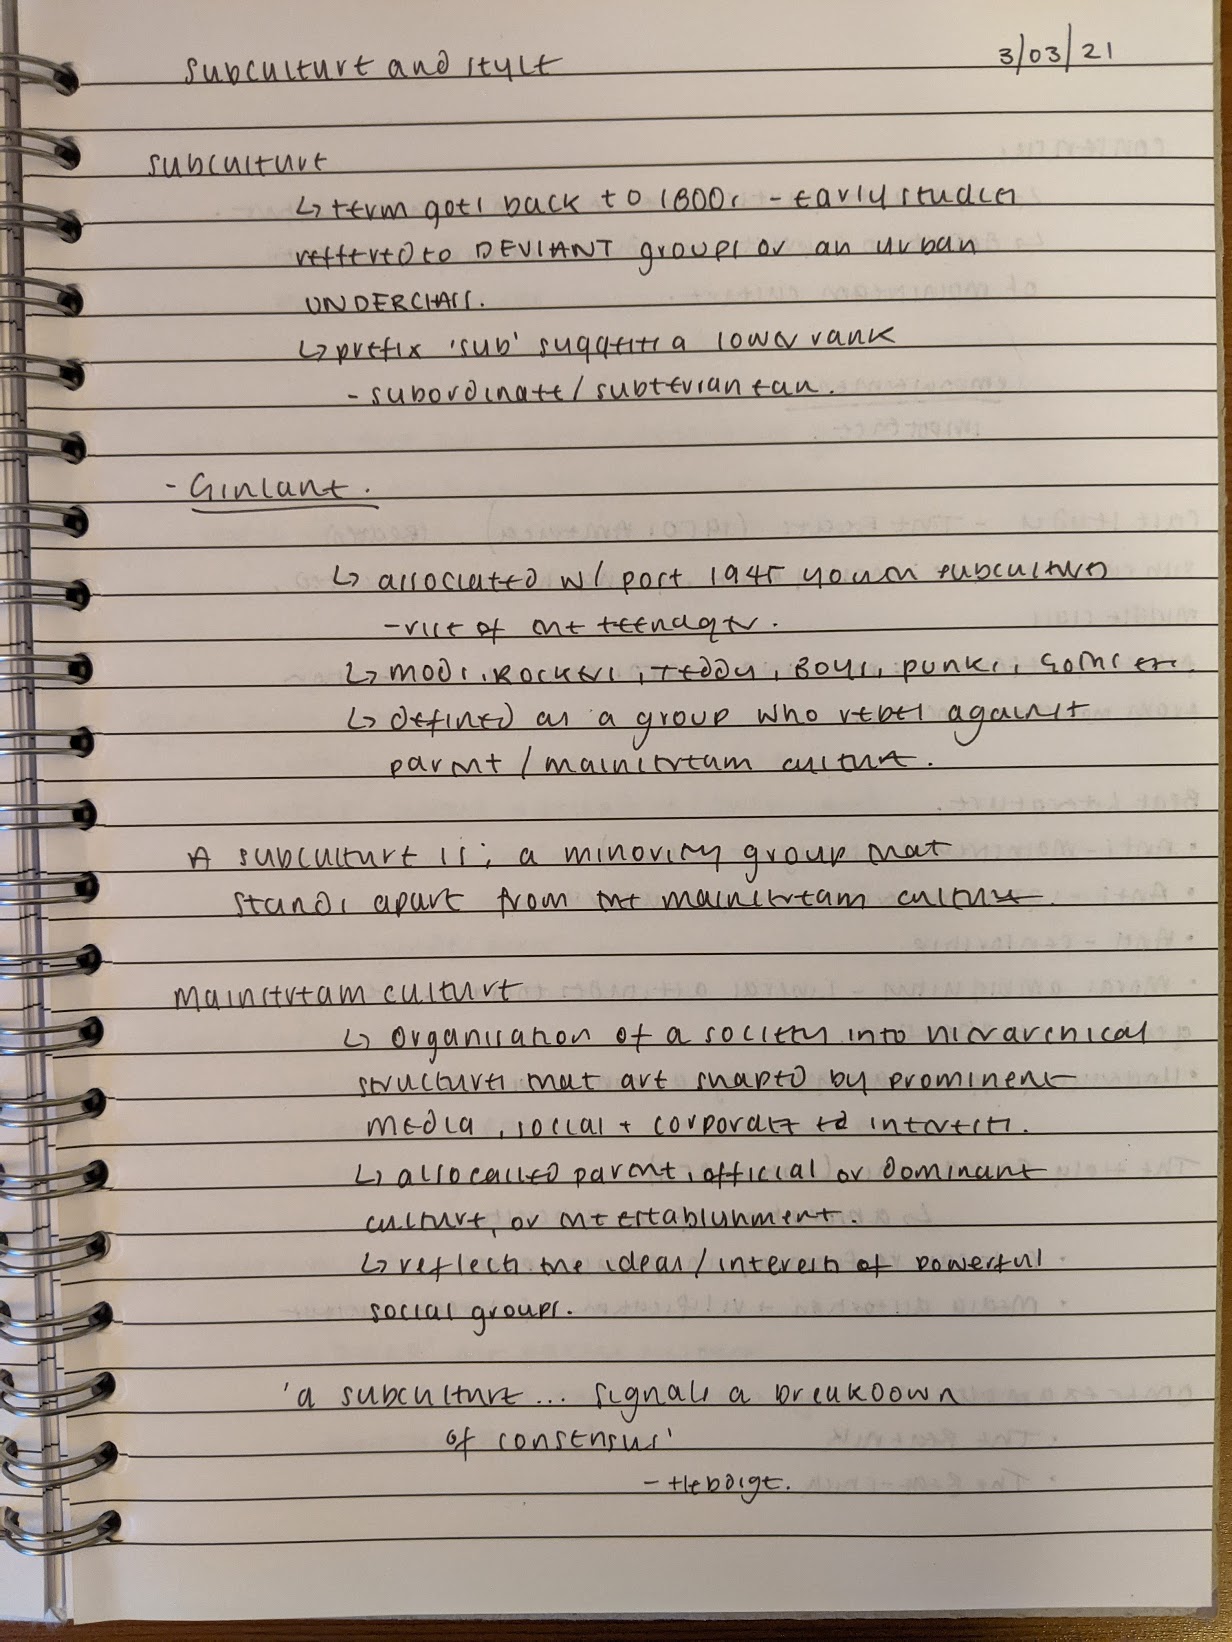 Subculture and style 3/03/21
subculture
↳ term goes back to 1800s - early studies
reffered to DEVIANT groups or an urban
UNDERCLASS.
↳ prefix 'sub' suggests a lower rank
- subordinate / subterranean.
↳ associated w/ post 1945 youth subcultures
- rise of the teenager.
↳ mods, Rockers, Teddy, Boys, punks, Goths etc.
↳ defined as a group who rebel against
parent / mainstream culture.
A subculture is; a minority group that
stands apart from the mainstream culture.
Mainstream culture
↳ Organisation of a society into hierarchical
structures that are shaped by prominent
media, social + corporate interests.
↳ also called parent, official or dominant
culture, or the establishment.
↳ reflects the ideas / interests of powerful
social groups.
'a subculture... signals a breakdown
of consensus'
- Hebdige.